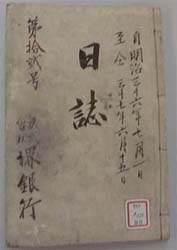 自明治三十六年七月一日
至仝三十七年六月十五日
日誌
第拾貳号
銀行